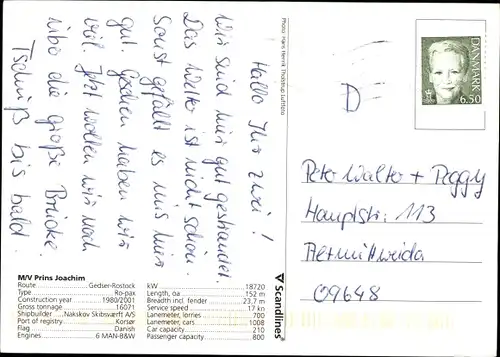 Hallo Ihr zwei!
Wir sind hier gut gestrandet.
Das Wetter ist nicht schön.
Sonst gefällt es uns hier
gut. Gesehen haben wir
viel. Jetzt wollen wir noch
über die große Brücke.
Tschüß bis bald.
Photo: Hans Henrik Tholstrup Luftfoto
DANMARK
6.50
D
Peter Walter + Peggy
Hauptstr. 113
Altmittweida
09648
Scandlines
M/V Prins Joachim
Route Gedser-Rostock
Type Ro-pax
Construction year 1980/2001
Gross tonnage 16071
Shipbuilder Nakskov Skibsværft A/S
Port of registry Korsør
Flag Danish
Engines 6 MAN-B&W
kW 18720
Length, oa 152 m
Breadth incl. fender 23,7 m
Service speed 17 kn
Lanemeter, lorries 700
Lanemeter, cars 1008
Car capacity 210
Passenger capacity 800